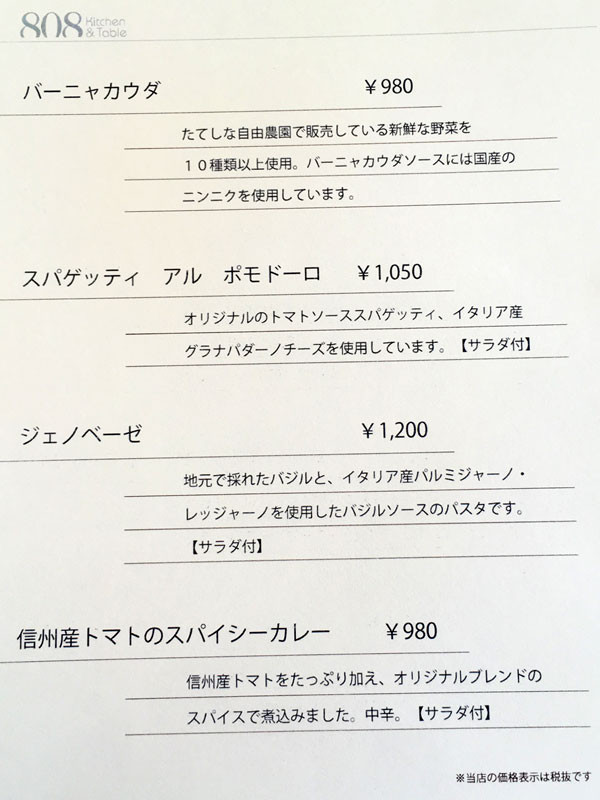 808 Kitchen
& Table
バーニャカウダ ￥980
たてしな自由農園で販売している新鮮な野菜を
１０種類以上使用。バーニャカウダソースには国産の
ニンニクを使用しています。
スパゲッティ　アル　ポモドーロ ￥1,050
オリジナルのトマトソーススパゲッティ、イタリア産
グラナパダーノチーズを使用しています。【サラダ付】
ジェノベーゼ ￥1,200
地元で採れたバジルと、イタリア産パルミジャーノ・
レッジャーノを使用したバジルソースのパスタです。
【サラダ付】
信州産トマトのスパイシーカレー ￥980
信州産トマトをたっぷり加え、オリジナルブレンドの
スパイスで煮込みました。中辛。【サラダ付】
※当店の価格表示は税抜です